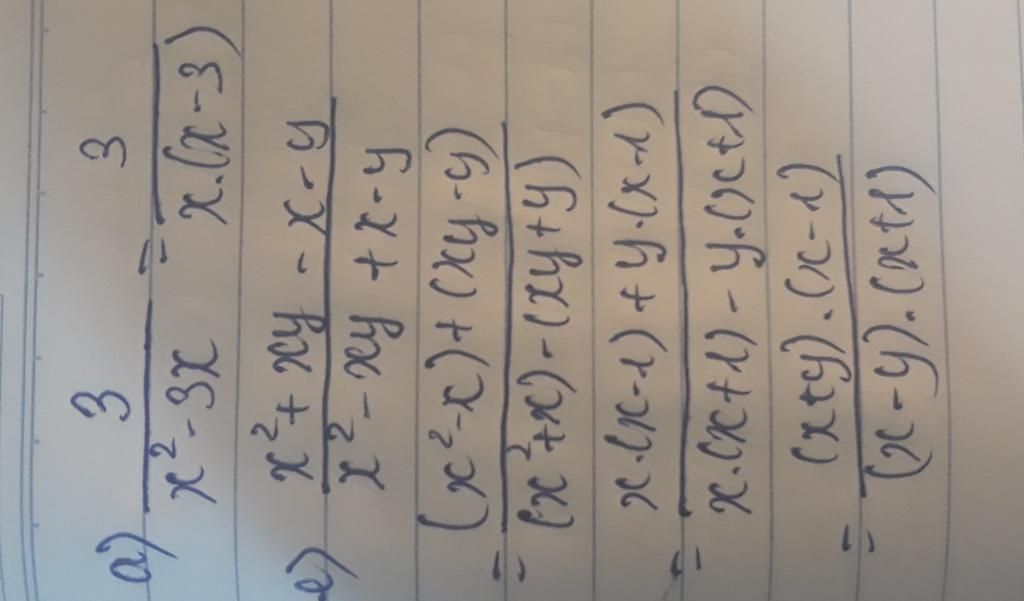 a) 3/(x² - 3x) = 3/(x.(x - 3))
e) (x² + xy - x - y)/(x² - xy + x - y)
= ((x² - x) + (xy - y))/((x² + x) - (xy + y))
= (x.(x - 1) + y.(x - 1))/(x.(x + 1) - y.(x + 1))
= ((x + y).(x - 1))/((x - y).(x + 1))